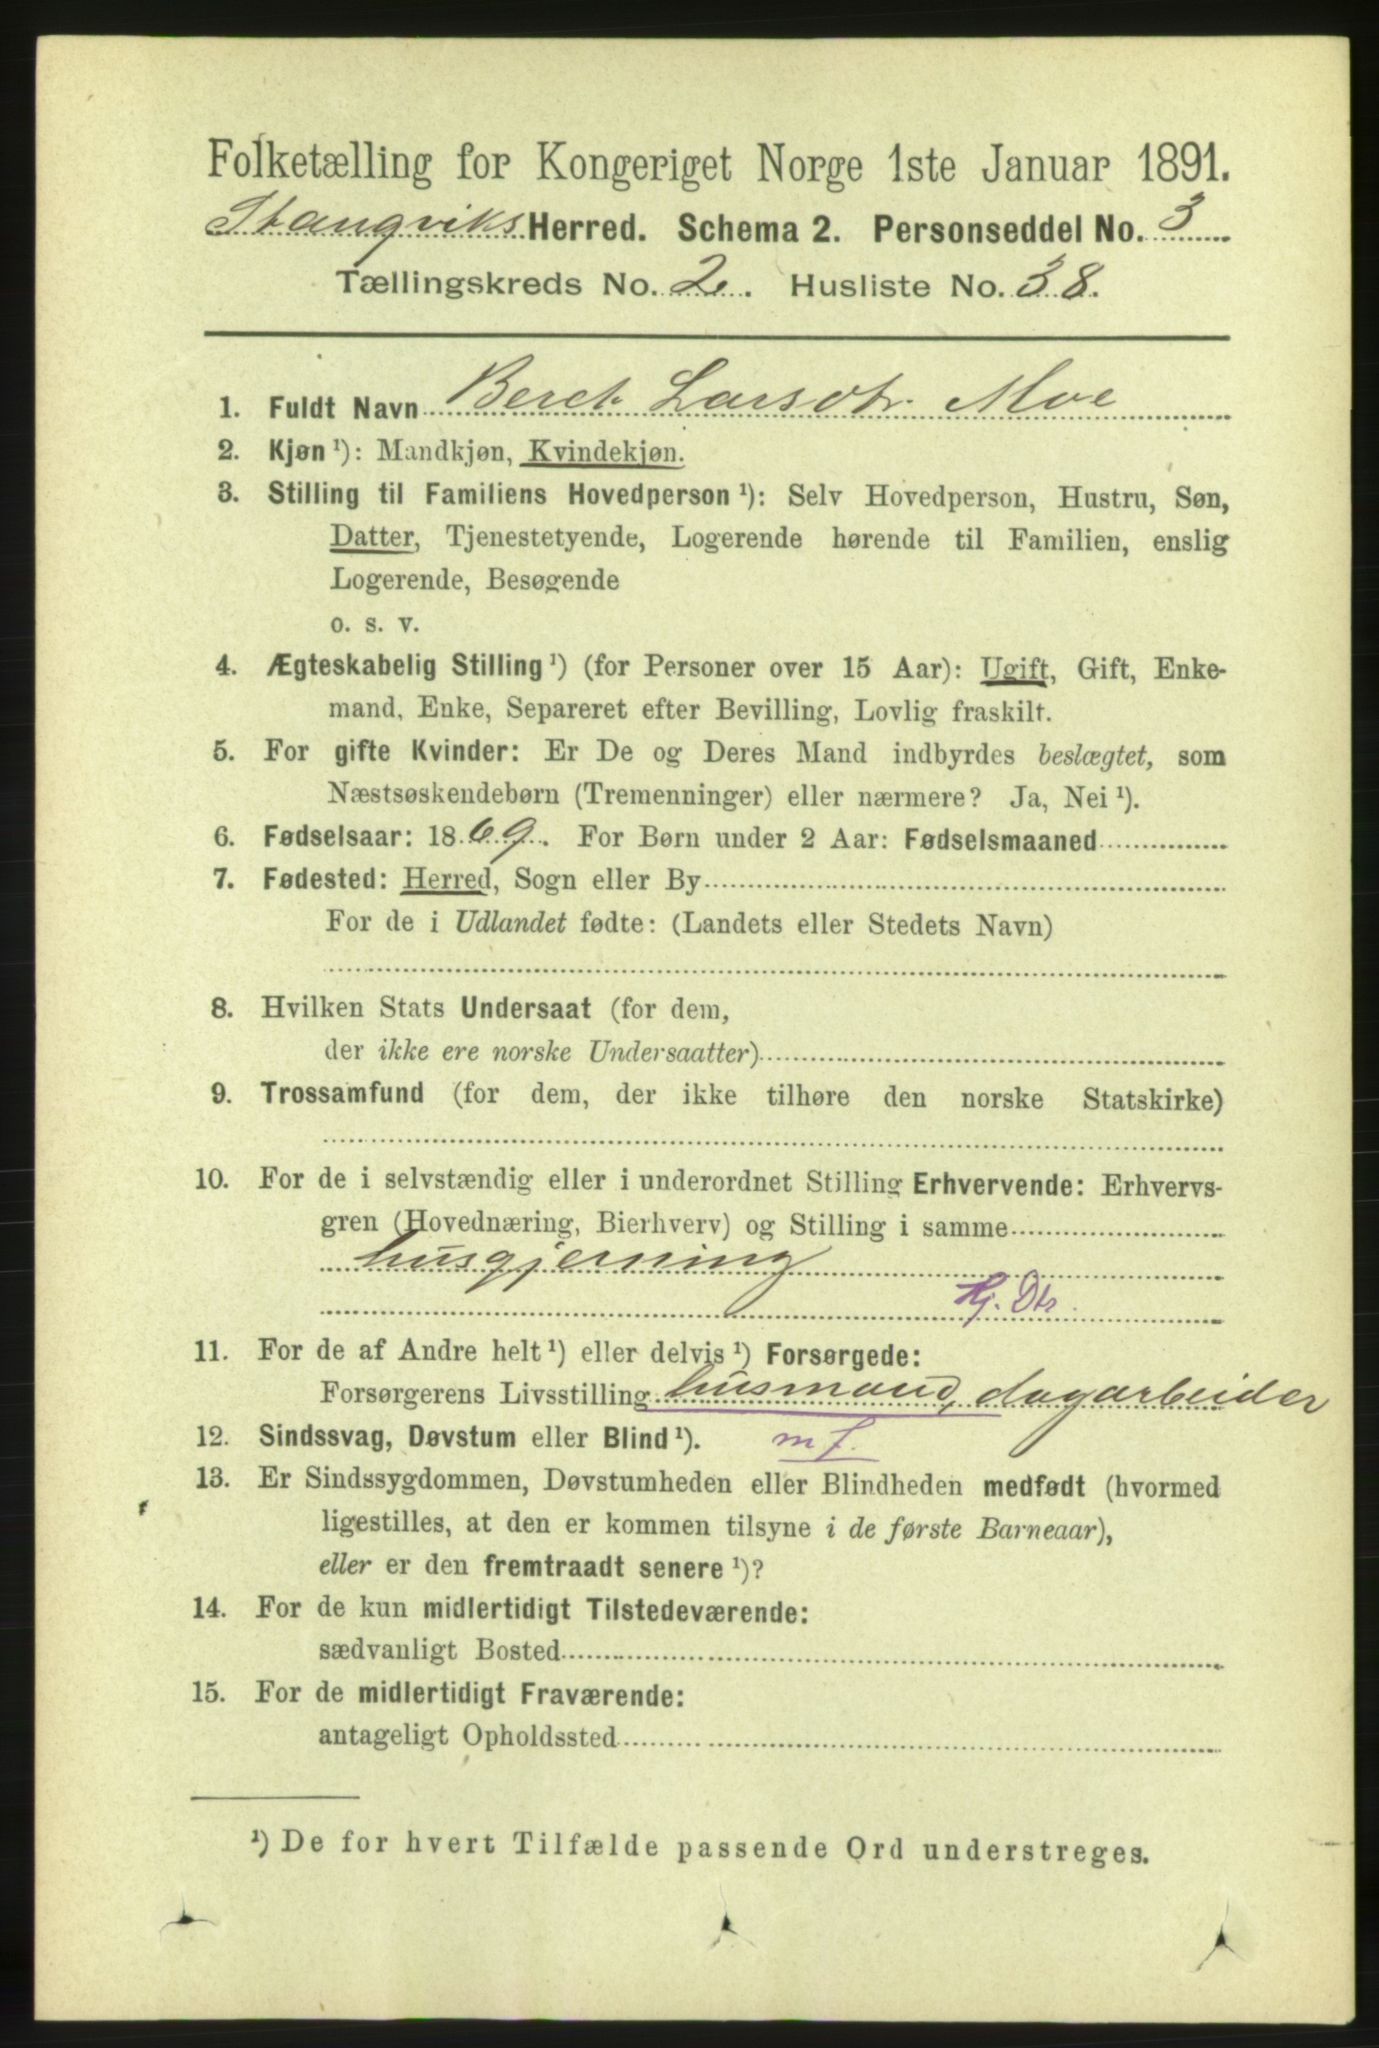 Folketælling for Kongeriget Norge 1ste Januar 1891.
Stangviks Herred. Schema 2. Personseddel No. 3
Tællingskreds No. 2. Husliste No. 38.
1. Fuldt Navn Beret Larsdtr. Moe
2. Kjøn ¹): Mandkjøn, Kvindekjøn.
3. Stilling til Familiens Hovedperson ¹): Selv Hovedperson, Hustru, Søn,
Datter, Tjenestetyende, Logerende hørende til Familien, enslig
Logerende, Besøgende
o. s. v.
4. Ægteskabelig Stilling ¹) (for Personer over 15 Aar): Ugift, Gift, Enke-
mand, Enke, Separeret efter Bevilling, Lovlig fraskilt.
5. For gifte Kvinder: Er De og Deres Mand indbyrdes beslægtet, som
Næstsøskendebørn (Tremenninger) eller nærmere? Ja, Nei ¹).
6. Fødselsaar: 1869. For Børn under 2 Aar: Fødselsmaaned
7. Fødested: Herred, Sogn eller By
For de i Udlandet fødte: (Landets eller Stedets Navn)
8. Hvilken Stats Undersaat (for dem,
der ikke ere norske Undersaatter)
9. Trossamfund (for dem, der ikke tilhøre den norske Statskirke)
10. For de i selvstændig eller i underordnet Stilling Erhvervende: Erhvervs-
gren (Hovednæring, Bierhverv) og Stilling i samme
husgjerning
Hj. Dtr.
11. For de af Andre helt ¹) eller delvis ¹) Forsørgede:
Forsørgerens Livsstilling husmand, dagarbeider
12. Sindssvag, Døvstum eller Blind ¹). m f.
13. Er Sindssygdommen, Døvstumheden eller Blindheden medfødt (hvormed
ligestilles, at den er kommen tilsyne i de første Barneaar),
eller er den fremtraadt senere ¹)?
14. For de kun midlertidigt Tilstedeværende:
sædvanligt Bosted
15. For de midlertidigt Fraværende:
antageligt Opholdssted
¹) De for hvert Tilfælde passende Ord understreges.